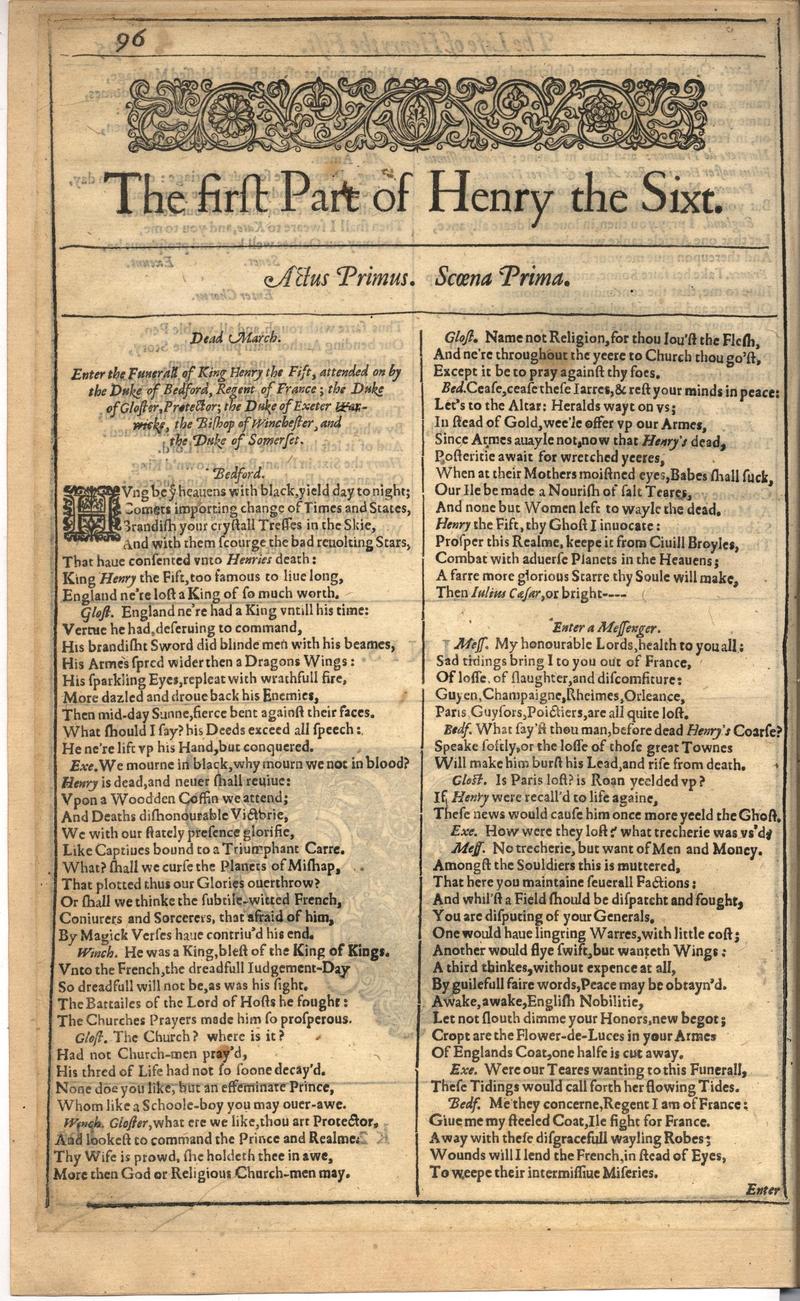 96
The first Part of Henry the Sixt.
Actus Primus. Scœna Prima.
Dead March.
Enter the Funerall of King Henry the Fift, attended on by
the Duke of Bedford, Regent of France; the Duke
of Gloster, Protector; the Duke of Exeter War-
wicke, the Bishop of Winchester, and
the Duke of Somerset.
Bedford.
HVng be ẙ heauens with black, yield day to night;
Comets importing change of Times and States,
Brandish your crystall Tresses in the Skie,
And with them scourge the bad reuolting Stars,
That haue consented vnto Henries death:
King Henry the Fift, too famous to liue long,
England ne're lost a King of so much worth.
Glost. England ne're had a King vntill his time:
Vertue he had, deseruing to command,
His brandisht Sword did blinde men with his beames,
His Armes spred wider then a Dragons Wings:
His sparkling Eyes, repleat with wrathfull fire,
More dazled and droue back his Enemies,
Then mid-day Sunne, fierce bent against their faces.
What should I say? his Deeds exceed all speech:
He ne're lift vp his Hand, but conquered.
Exe. We mourne in black, why mourn we not in blood?
Henry is dead, and neuer shall reuiue:
Vpon a Woodden Coffin we attend;
And Deaths dishonourable Victorie,
We with our stately presence glorifie,
Like Captiues bound to a Triumphant Carre.
What? shall we curse the Planets of Mishap,
That plotted thus our Glories ouerthrow?
Or shall we thinke the subtile-witted French,
Coniurers and Sorcerers, that afraid of him,
By Magick Verses haue contriu'd his end.
Winch. He was a King, blest of the King of Kings.
Vnto the French, the dreadfull Iudgement-Day
So dreadfull will not be, as was his sight.
The Battailes of the Lord of Hosts he fought:
The Churches Prayers made him so prosperous.
Glost. The Church? where is it?
Had not Church-men pray'd,
His thred of Life had not so soone decay'd.
None doe you like, but an effeminate Prince,
Whom like a Schoole-boy you may ouer-awe.
Winch. Gloster, what ere we like, thou art Protector,
And lookest to command the Prince and Realme.
Thy Wife is prowd, she holdeth thee in awe,
More then God or Religious Church-men may.
Glost. Name not Religion, for thou lou'st the Flesh,
And ne're throughout the yeere to Church thou go'st,
Except it be to pray against thy foes.
Bed. Cease, cease these Iarres, & rest your minds in peace:
Let's to the Altar: Heralds wayt on vs;
In stead of Gold, wee'le offer vp our Armes,
Since Armes auayle not, now that Henry's dead,
Posteritie await for wretched yeeres,
When at their Mothers moistned eyes, Babes shall suck,
Our Ile be made a Nourish of salt Teares,
And none but Women left to wayle the dead.
Henry the Fift, thy Ghost I inuocate:
Prosper this Realme, keepe it from Ciuill Broyles,
Combat with aduerse Planets in the Heauens;
A farre more glorious Starre thy Soule will make,
Then Iulius Cæsar, or bright----
Enter a Messenger.
Mess. My honourable Lords, health to you all:
Sad tidings bring I to you out of France,
Of losse, of slaughter, and discomfiture:
Guyen, Champaigne, Rheimes, Orleance,
Paris Guysors, Poictiers, are all quite lost.
Bedf. What say'st thou man, before dead Henry's Coarse?
Speake softly, or the losse of those great Townes
Will make him burst his Lead, and rise from death.
Glost. Is Paris lost? is Roan yeelded vp?
If Henry were recall'd to life againe,
These news would cause him once more yeeld the Ghost.
Exe. How were they lost? what trecherie was vs'd?
Mess. No trecherie, but want of Men and Money.
Amongst the Souldiers this is muttered,
That here you maintaine seuerall Factions:
And whil'st a Field should be dispatcht and fought,
You are disputing of your Generals.
One would haue lingring Warres, with little cost;
Another would flye swift, but wanteth Wings:
A third thinkes, without expence at all,
By guilefull faire words, Peace may be obtayn'd.
Awake, awake, English Nobilitie,
Let not slouth dimme your Honors, new begot;
Cropt are the Flower-de-Luces in your Armes
Of Englands Coat, one halfe is cut away.
Exe. Were our Teares wanting to this Funerall,
These Tidings would call forth her flowing Tides.
Bedf. Me they concerne, Regent I am of France:
Giue me my steeled Coat, Ile fight for France.
Away with these disgracefull wayling Robes;
Wounds will I lend the French, in stead of Eyes,
To weepe their intermissiue Miseries.
Enter